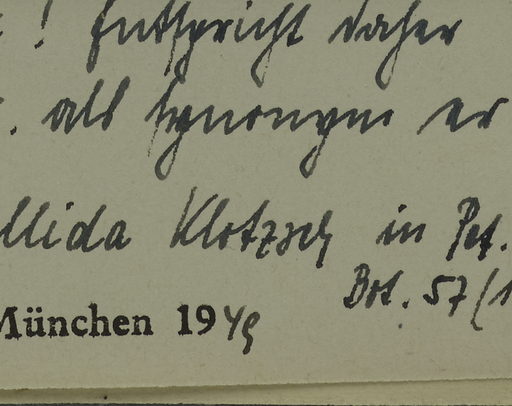 ! Entspricht daher
. als Synonym er
llida Klotzsch in Pet.
Bot. 57 (1
München 1949